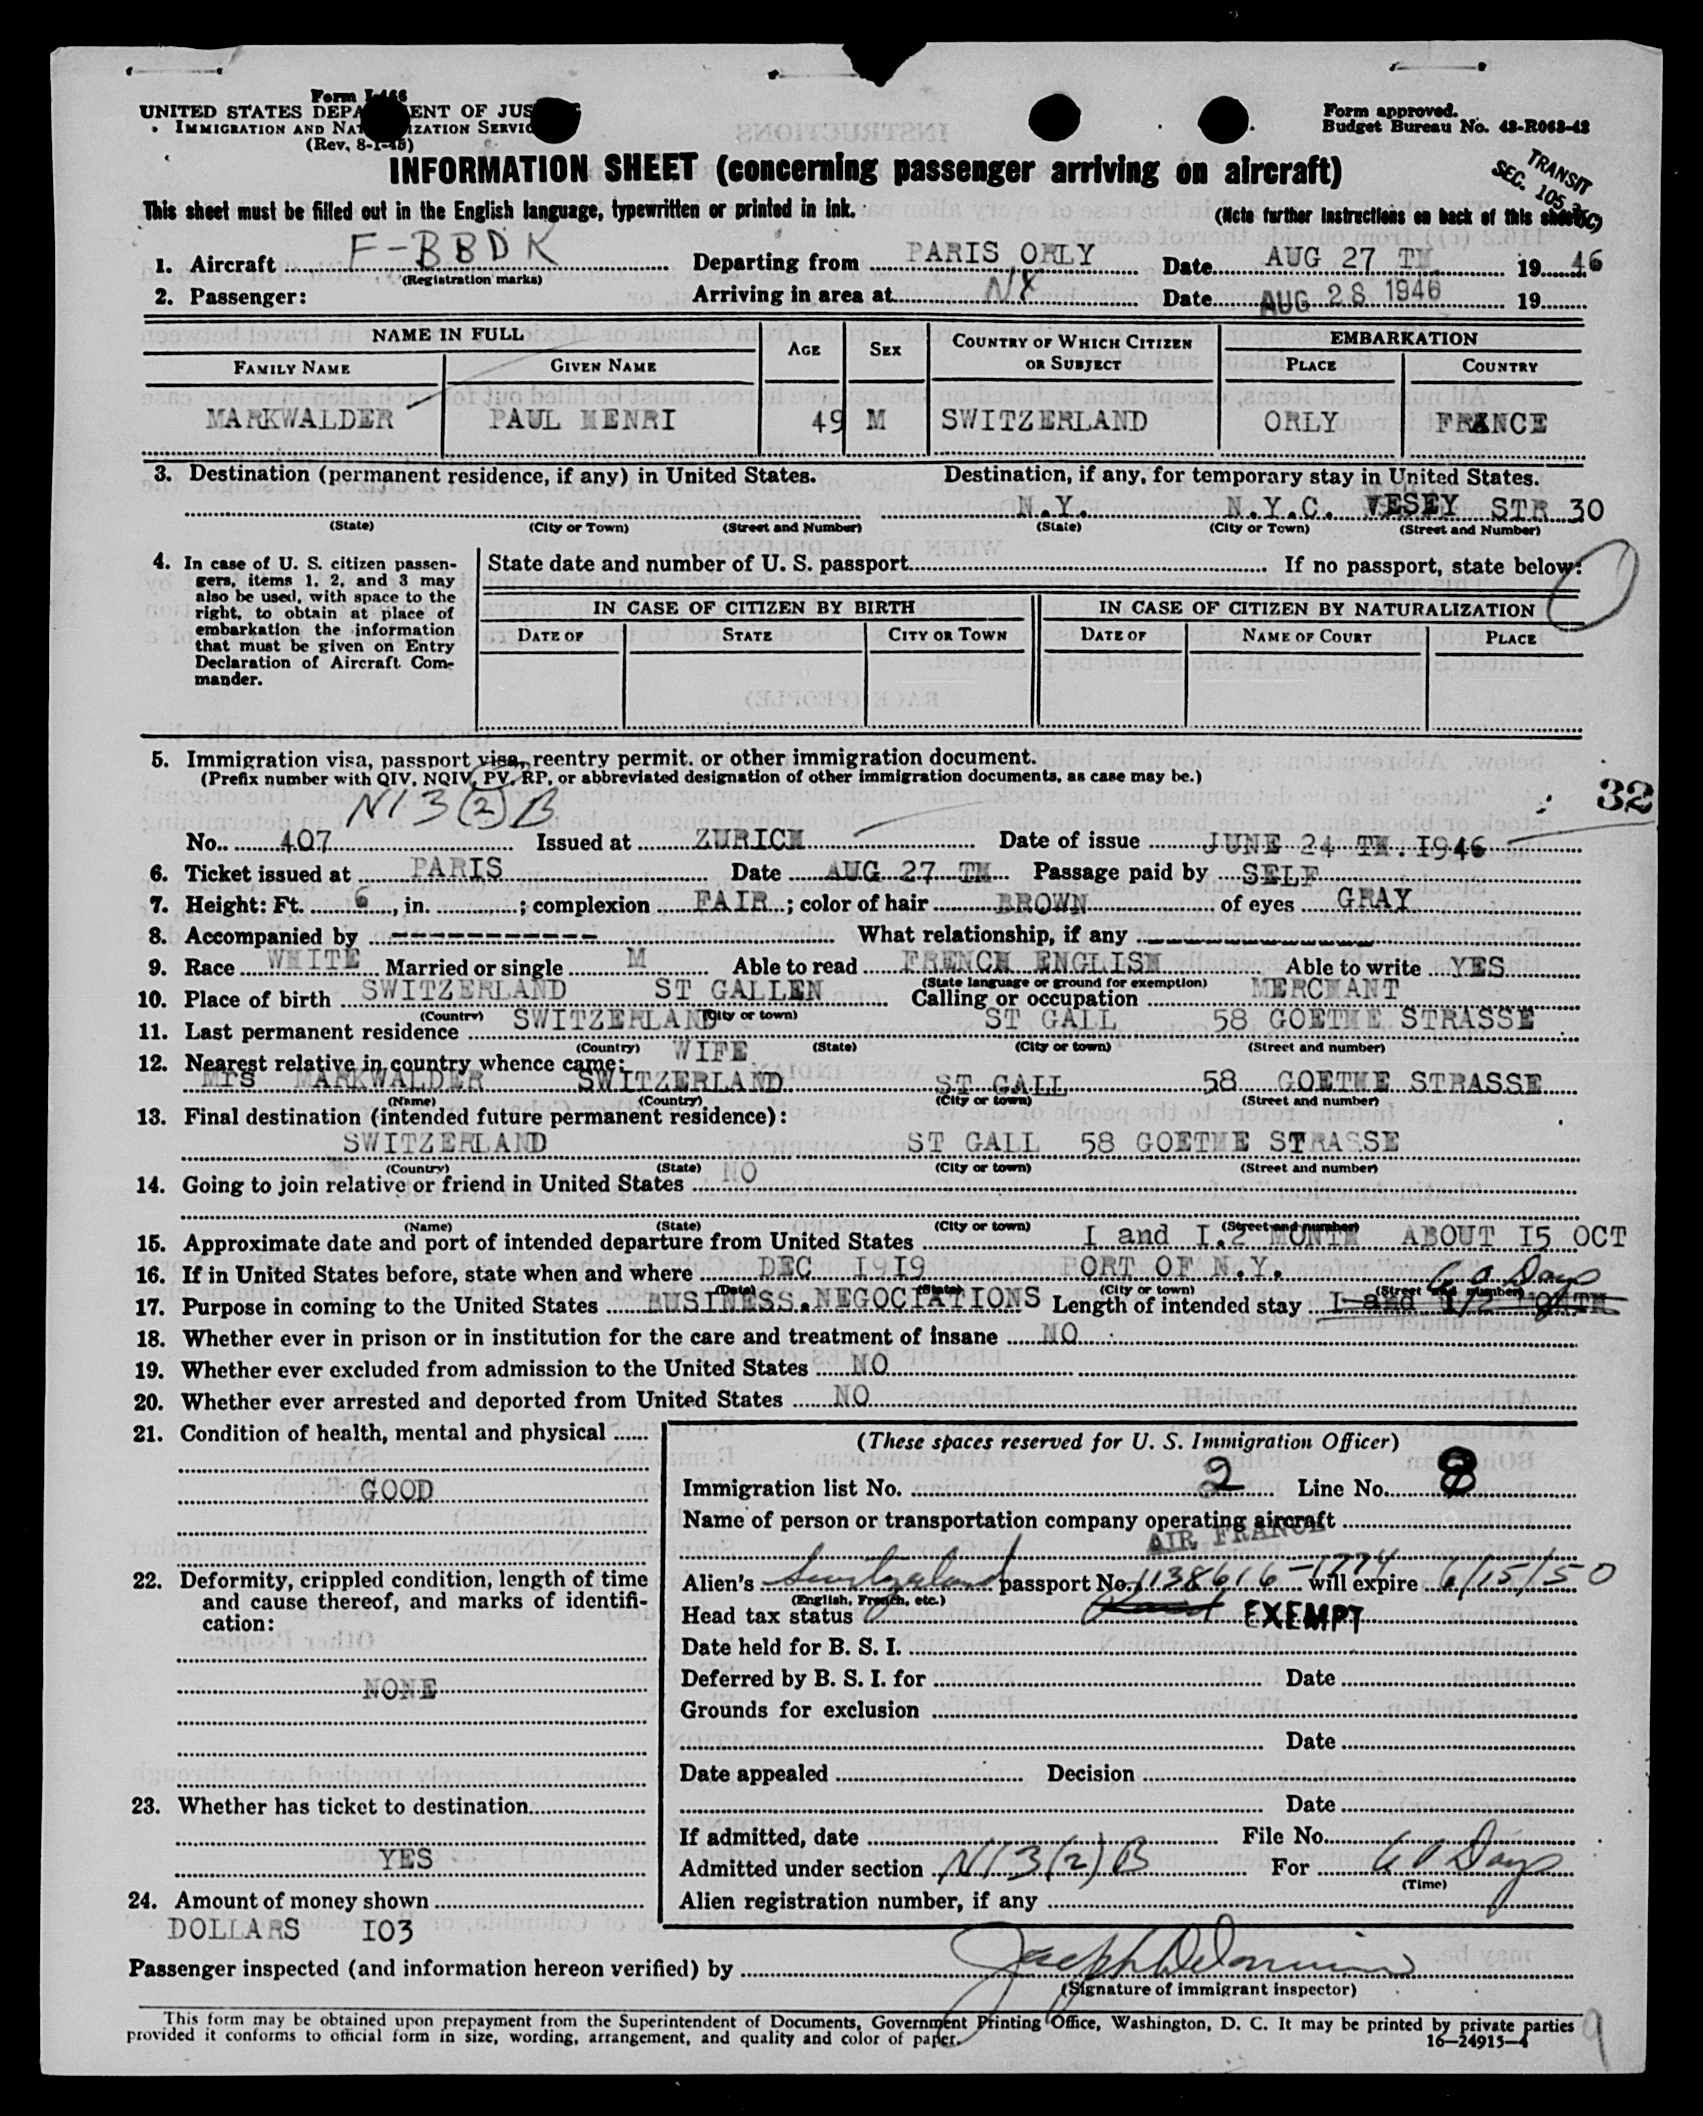 Form I-466
UNITED STATES DEPA ENT OF JUS
IMMIGRATION AND NAT IZATION SERVIC
(Rev. 8-1-45)
Form approved.
Budget Bureau No. 43-R063-42
INFORMATION SHEET (concerning passenger arriving on aircraft)
TRANSIT
SEC. 105.3(C)
This sheet must be filled out in the English language, typewritten or printed in ink.
(Note further instructions on back of this sheet)
1. Aircraft F-BBDK Departing from PARIS ORLY Date AUG 27 TH 1946
(Registration marks)
2. Passenger: Arriving in area at NY Date AUG 28 1946 19
NAME IN FULL AGE SEX COUNTRY OF WHICH CITIZEN OR SUBJECT EMBARKATION
FAMILY NAME GIVEN NAME PLACE COUNTRY
MARKWALDER PAUL HENRI 49 M SWITZERLAND ORLY FRANCE
3. Destination (permanent residence, if any) in United States. Destination, if any, for temporary stay in United States.
N.Y. N.Y.C. VESEY STR 30
(State) (City or Town) (Street and Number) (State) (City or Town) (Street and Number)
4. In case of U. S. citizen passen-
gers, items 1, 2, and 3 may
also be used, with space to the
right, to obtain at place of
embarkation the information
that must be given on Entry
Declaration of Aircraft Com-
mander.
State date and number of U. S. passport If no passport, state below:
IN CASE OF CITIZEN BY BIRTH IN CASE OF CITIZEN BY NATURALIZATION
DATE OF STATE CITY OR TOWN DATE OF NAME OF COURT PLACE
5. Immigration visa, passport visa, reentry permit, or other immigration document.
(Prefix number with QIV, NQIV, PV, RP, or abbreviated designation of other immigration documents, as case may be.)
32
N13(2)B
No. 407 Issued at ZURICH Date of issue JUNE 24 TH. I946
6. Ticket issued at PARIS Date AUG 27 TH Passage paid by SELF
7. Height: Ft. 6, in. ; complexion FAIR ; color of hair BROWN of eyes GRAY
8. Accompanied by ------------ What relationship, if any ------------
9. Race WHITE Married or single M Able to read FRENCH ENGLISH Able to write YES
(State language or ground for exemption)
10. Place of birth SWITZERLAND ST GALLEN Calling or occupation MERCHANT
(Country) (City or town)
11. Last permanent residence SWITZERLAND ST GALL 58 GOETHE STRASSE
(Country) (State) (City or town) (Street and number)
12. Nearest relative in country whence came: WIFE
Mrs MARKWALDER SWITZERLAND ST GALL 58 GOETHE STRASSE
(Name) (Country) (City or town) (Street and number)
13. Final destination (intended future permanent residence):
SWITZERLAND ST GALL 58 GOETHE STRASSE
(Country) (State) (City or town) (Street and number)
14. Going to join relative or friend in United States NO
(Name) (State) (City or town) (Street and number)
15. Approximate date and port of intended departure from United States I and I.2 MONTH ABOUT I5 OCT
16. If in United States before, state when and where DEC I9I9 PORT OF N.Y.
(Date) (State) (City or town) (Street and number)
60 Days
17. Purpose in coming to the United States BUSINESS.NEGOCIATIONS Length of intended stay I and I/2 MONTH
18. Whether ever in prison or in institution for the care and treatment of insane NO
19. Whether ever excluded from admission to the United States NO
20. Whether ever arrested and deported from United States NO
21. Condition of health, mental and physical
GOOD
22. Deformity, crippled condition, length of time
and cause thereof, and marks of identifi-
cation:
NONE
23. Whether has ticket to destination
YES
24. Amount of money shown
DOLLARS I03
(These spaces reserved for U. S. Immigration Officer)
Immigration list No. 2 Line No. 8
Name of person or transportation company operating aircraft
AIR FRANCE
Alien's Switzerland passport No. 1138616-1774 will expire 6/15/50
(English, French, etc.)
Head tax status EXEMPT
Date held for B. S. I.
Deferred by B. S. I. for Date
Grounds for exclusion
Date
Date appealed Decision
Date
If admitted, date File No.
Admitted under section N13(2)B For 60 Days
(Time)
Alien registration number, if any
Passenger inspected (and information hereon verified) by
(Signature of immigrant inspector)
This form may be obtained upon prepayment from the Superintendent of Documents, Government Printing Office, Washington, D. C. It may be printed by private parties
provided it conforms to official form in size, wording, arrangement, and quality and color of paper.
16—24915-4
9